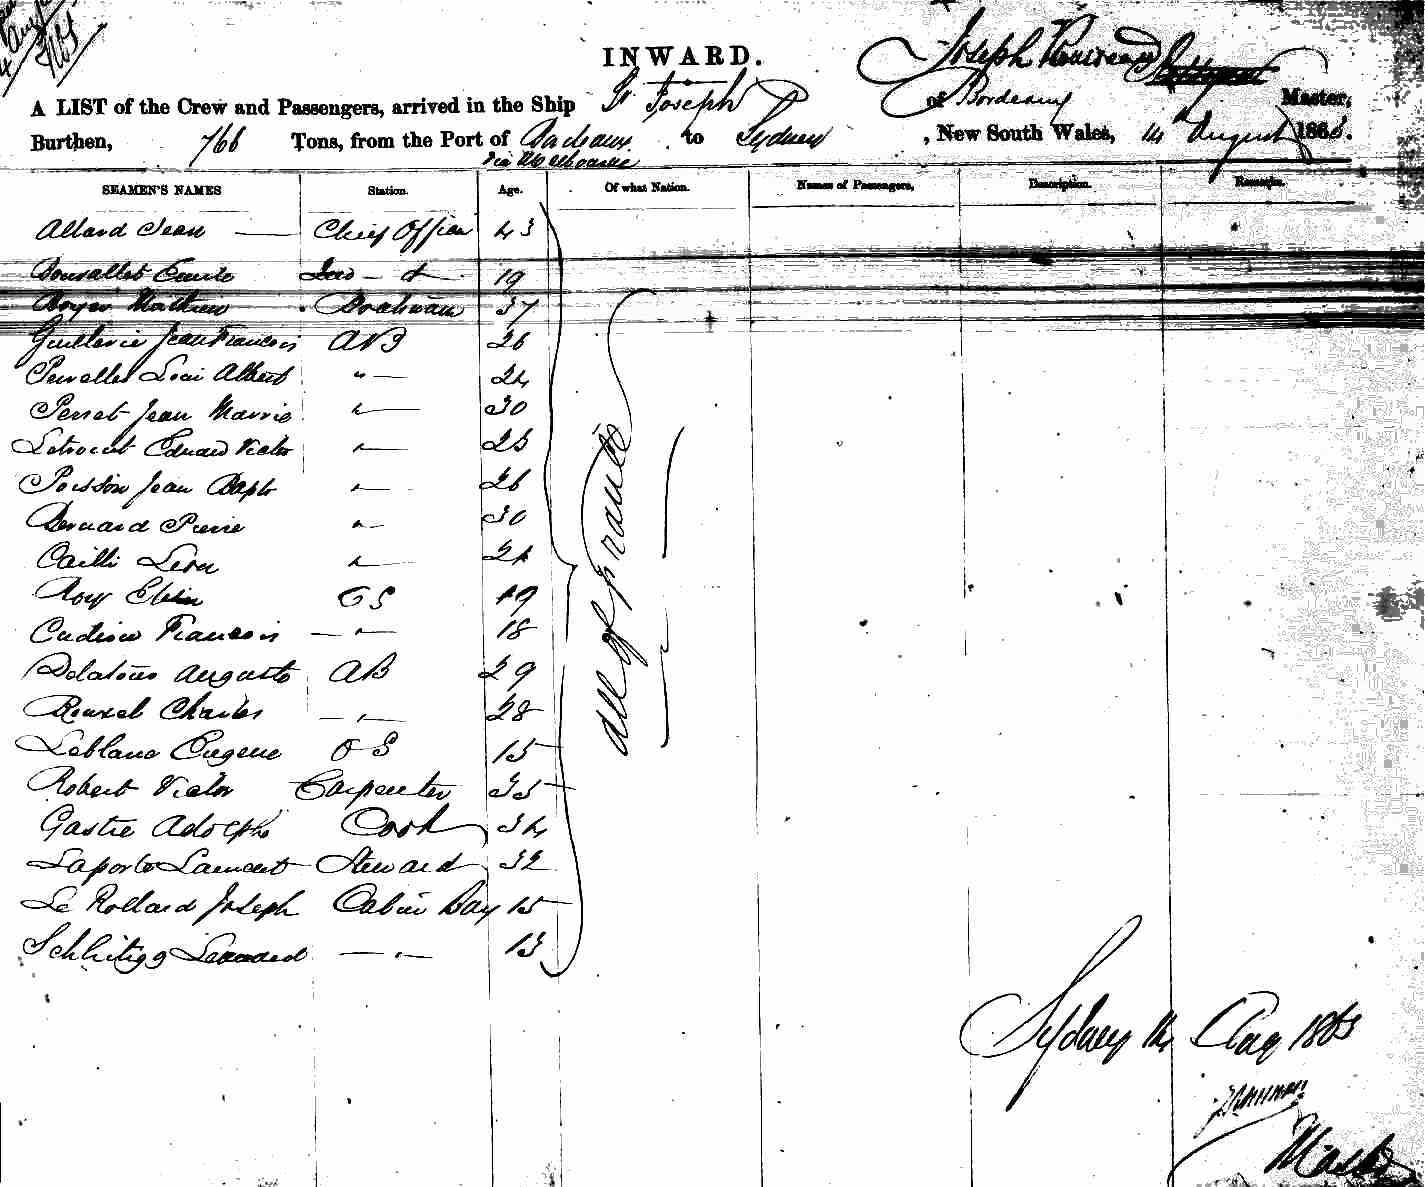 INWARD.
Joseph
A LIST of the Crew and Passengers, arrived in the Ship St Joseph of Bordeaux Master,
Burthen, 766 Tons, from the Port of Bordeaux to Sydney, New South Wales, 14 August 1863.
via Melbourne
SEAMEN'S NAMES Station. Age. Of what Nation. Names of Passengers, Description. Remarks.
Allard Jean — Chief Officer 43
Emile 19
Mathieu 37
Jean Francois AB 26
Albert " — 24
Perret Jean Marrie " — 30
Eduard Victor " —
Poisson Jean Bapte " — 26
Bernard Pierre " — 30
Cailli Leon " — 24
Roy OS 19
Francois — " — 18
Auguste AB 29
Rouxel Charles — " — 28
Leblanc Eugene OS 15
Robert Victor Carpenter 35
Gastie Adolphe Cook 34
Laporte Laurent Steward 32
Le Rolland Joseph Cabin Boy 15
— " — 13
all of France
Sydney 14 Aug 1863
Master